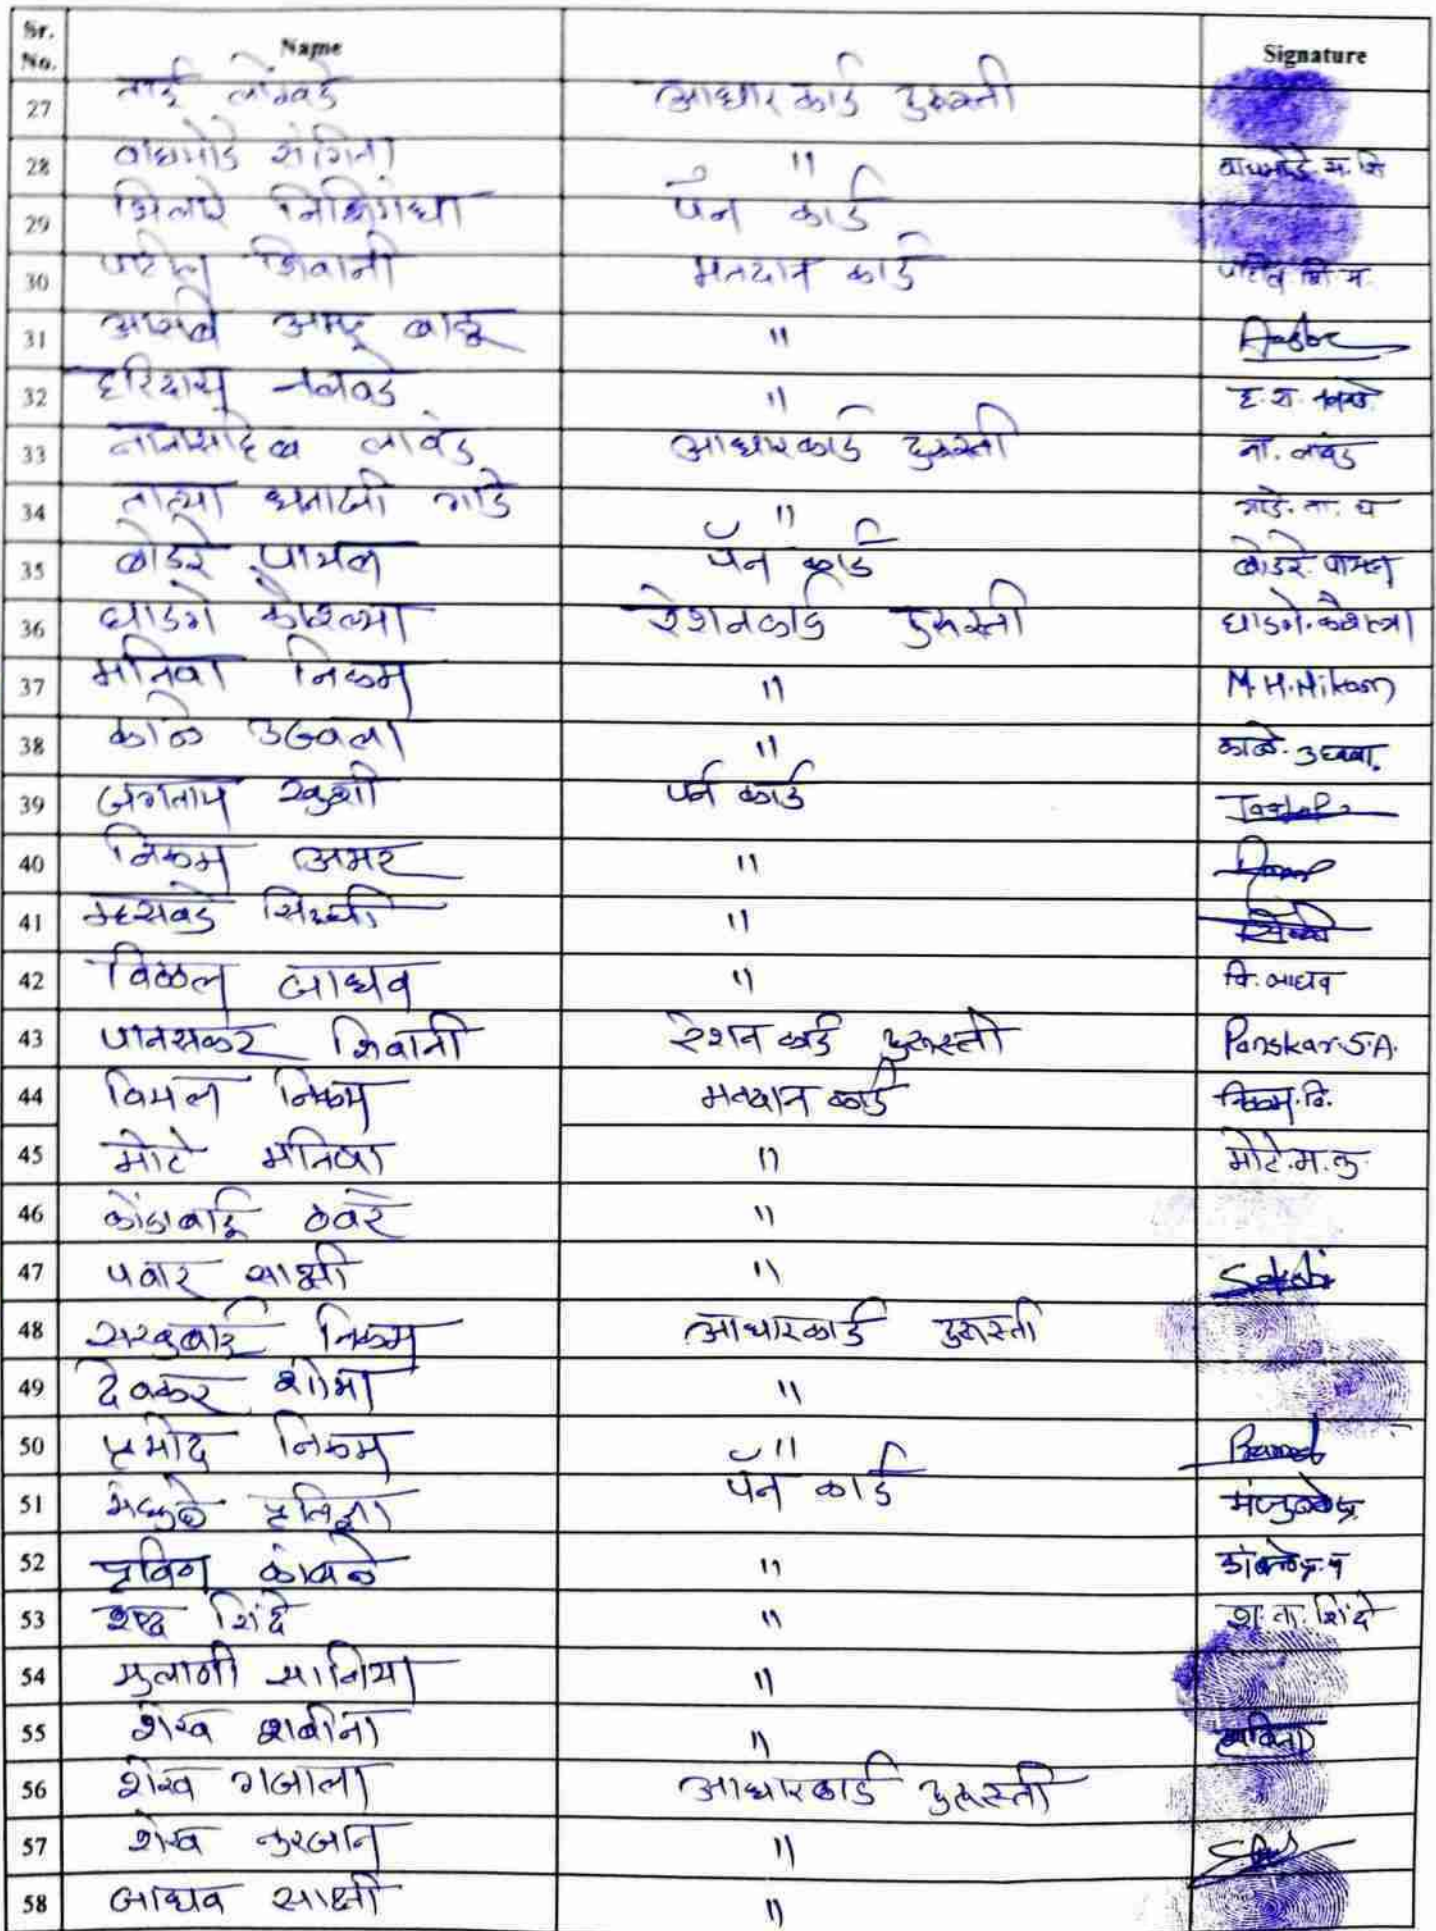 Sr. No. Name Signature
27 ताई लोंखडे आधार कार्ड दुरुस्ती
28 वाघमोडे संगिता " वाघमोडे. स. शि
29 पॅन कार्ड
30 पाटील शिवानी मतदान कार्ड पाटील. शि. म.
31 " Aasbe
32 हरिदास नलवडे "
33 नानासाहेब लावंड आधारकार्ड दुरुस्ती ना. लावंड
34 तात्या धनाजी गाडे " गाडे. ता. ध
35 बोडरे पायल पॅन कार्ड बोडरे. पायल
36 घाडगे कौशल्या रेशनकार्ड दुरुस्ती घाडगे. कौशल्या
37 मनिषा निकम " M.H.Nikam
38 काळे उज्वला " काळे. उज्वला.
39 जगताप खुशी पॅन कार्ड Jagtap
40 निकम अमर "
41 म्हसवडे सिध्दी "
42 विठ्ठल जाधव " वि. जाधव
43 पानसकर शिवानी रेशन कार्ड दुरुस्ती Panskar.S.A.
44 विमल निकम मतदान कार्ड निकम. वि.
45 मोटे मनिषा " मोटे. म. कु.
46 कोंडाबाई ठवरे "
47 पवार साक्षी " Sakshi
48 सखुबाई निकम आधारकार्ड दुरुस्ती
49 देवकर शोभा "
50 प्रमोद निकम "
51 मंजुळे प्रतिज्ञा पॅन कार्ड
52 प्रविण कांबळे " कांबळे. प्र. प
53 शिंदे " श. ता. शिंदे
54 मुलाणी सानिया "
55 शेख शबीना "
56 शेख गजाला आधारकार्ड दुरुस्ती
57 शेख नुरजान "
58 जाधव साक्षी "